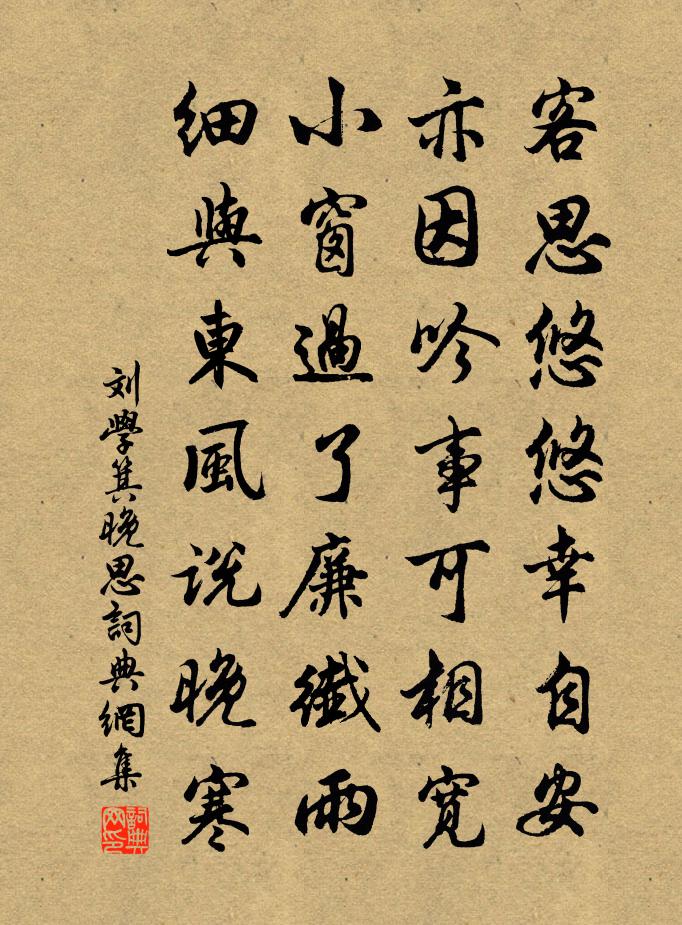 客思悠悠幸自安
亦因吟事可相寬
小窗過了廉纖雨
細與東風说晚寒
刘學箕晚思詞典網集
詞典网印